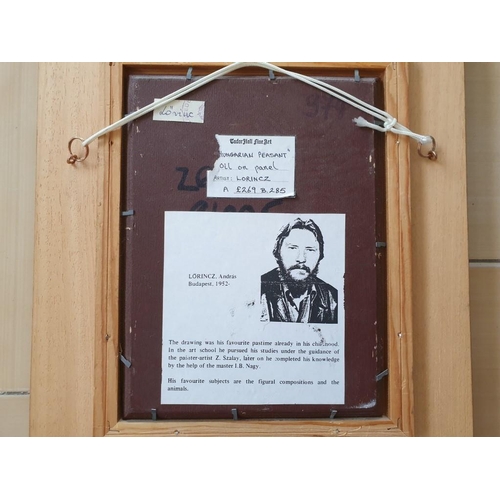 Lőrinc
Tudor Hall Fine Art
HUNGARIAN PEASANT
OLL on panel
Artist: LORINCZ
A £269 B.285
LŐRINCZ, András
Budapest, 1952-
The drawing was his favourite pastime already in his chidhood.
In the art school he pursued his studies under the guidance of
the painter-artist Z. Szalay, later on he completed his knowledge
by the help of the master I.B. Nagy.
His favourite subjects are the figural compositions and the
animals.